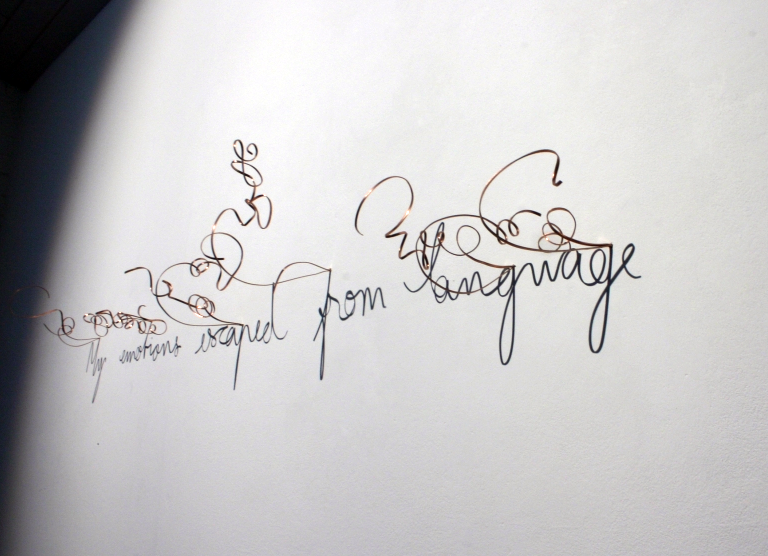 My emotions escaped from language